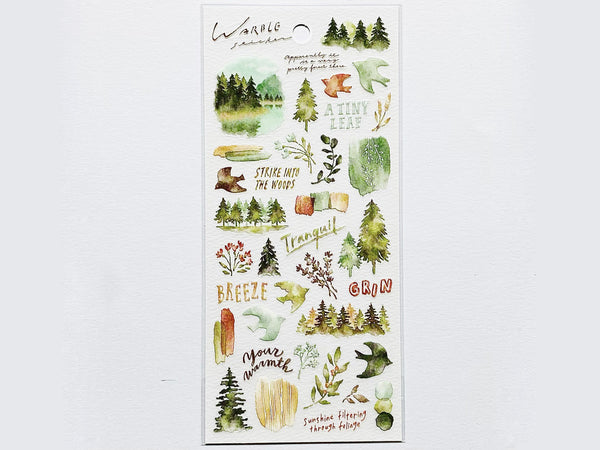 WARBLE
sticker
Apparently it
is a very
pretty forest there
A TINY
LEAF
STRIKE INTO
THE WOODS
Tranquil
BREEZE
GRIN
Your
warmth
Sunshine filtering
through foliage